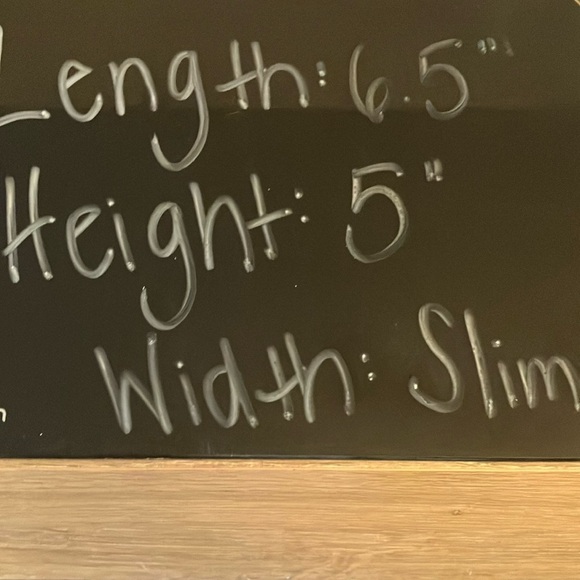 Length: 6.5"
Height: 5"
Width: Slim